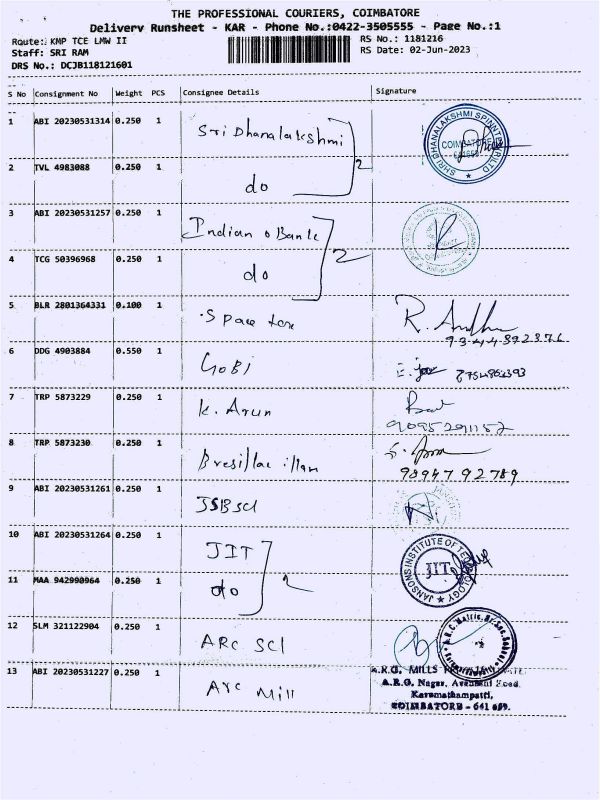 THE PROFESSIONAL COURIERS, COIMBATORE
Delivery Runsheet - KAR - Phone No.:0422-3505555 - Page No.:1
Route: KMP TCE LMW II RS No.: 1181216
Staff: SRI RAM RS Date: 02-Jun-2023
DRS No.: DCJB118121601
S No Consignment No Weight PCS Consignee Details Signature
1 ABI 20230531314 0.250 1 Sri Dhanalakshmi
2 TVL 4983088 0.250 1 do 2
SHRI DHANALAKSHMI SPINNTEX (P) LTD COIMBATORE
3 ABI 20230531257 0.250 1 Indian o Bank
4 TCG 50396968 0.250 1 do 2
5 BLR 2801364331 0.100 1 Space tex R.
9344392376
6 DDG 4903884 0.550 1 GOBI
7 TRP 5873229 0.250 1 K. Arun
9095291157
8 TRP 5873230 0.250 1 illam
9894792789
9 ABI 20230531261 0.250 1 JSB scl
10 ABI 20230531264 0.250 1 JIT
11 MAA 942990964 0.250 1 do 2
JANSONS INSTITUTE OF TECHNOLOGY JIT
12 SLM 321122904 0.250 1 ARC SCl
A.R.C. Matric. Hr. Sec. School
13 ABI 20230531227 0.250 1 Arc Mill
A.R.G. MILLS PRIVATE LIMITED
A.R.G. Nagar, Avanashi Road,
Karumathampatti,
COIMBATORE - 641 659.